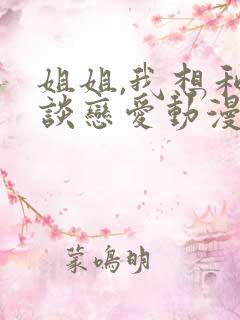 姐姐,我想和
談戀愛動漫
蒙鳴明